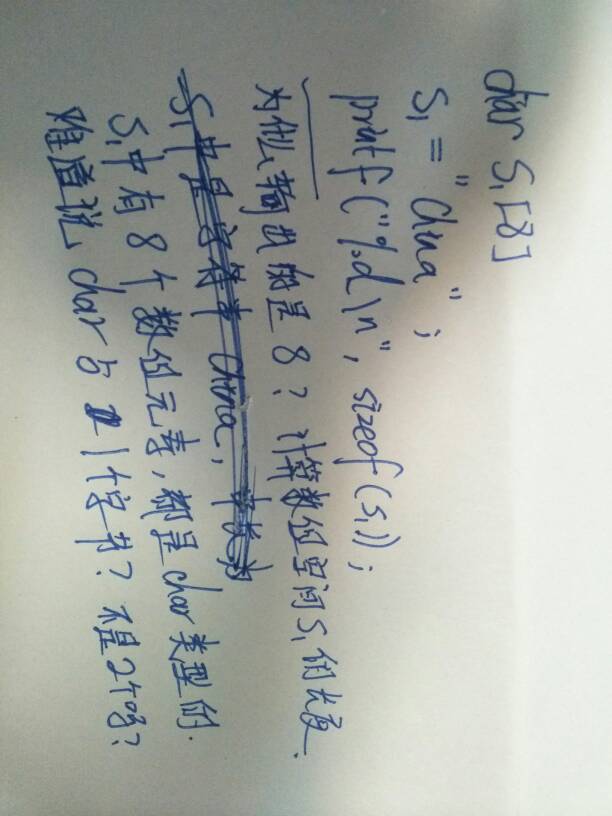 char S₁[8]
S₁ = "China";
printf("%d\n", sizeof(S₁));
为什么输出的是8？计算数组空间S₁的长度.
S₁中是字符串China，串长为
S₁中有8个数组元素，都是char类型的.
难道说char占1个字节？不是2个吗？